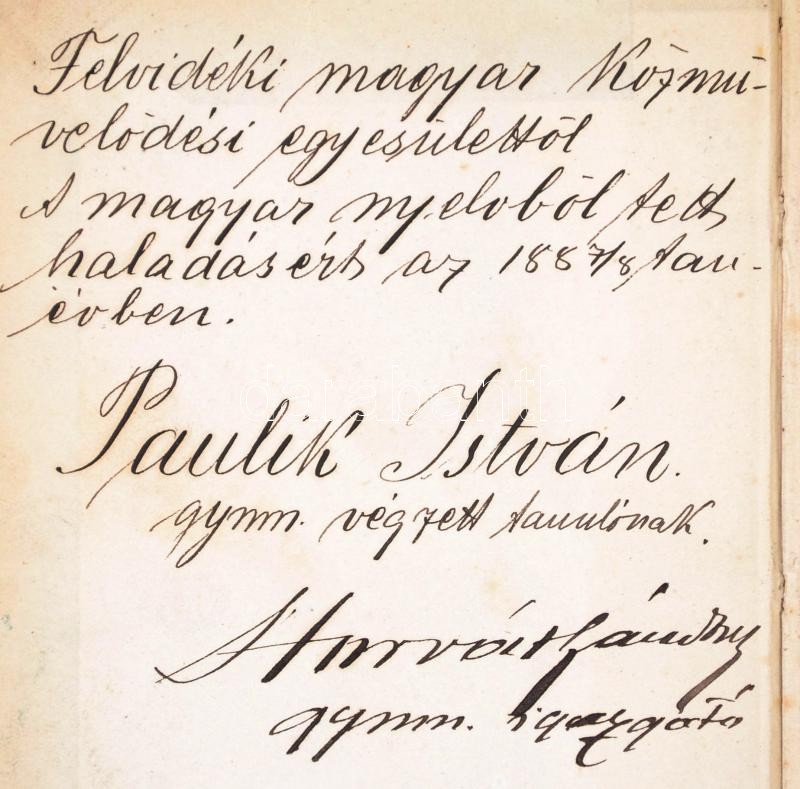 Felvidéki magyar Közmű-
velődési egyesülettől
A magyar nyelvből tett
haladásért az 1887/8 tan-
évben.
Paulik István.
gymn. végzett tanulónak.
Horváth
gymn. igazgató
darabanth